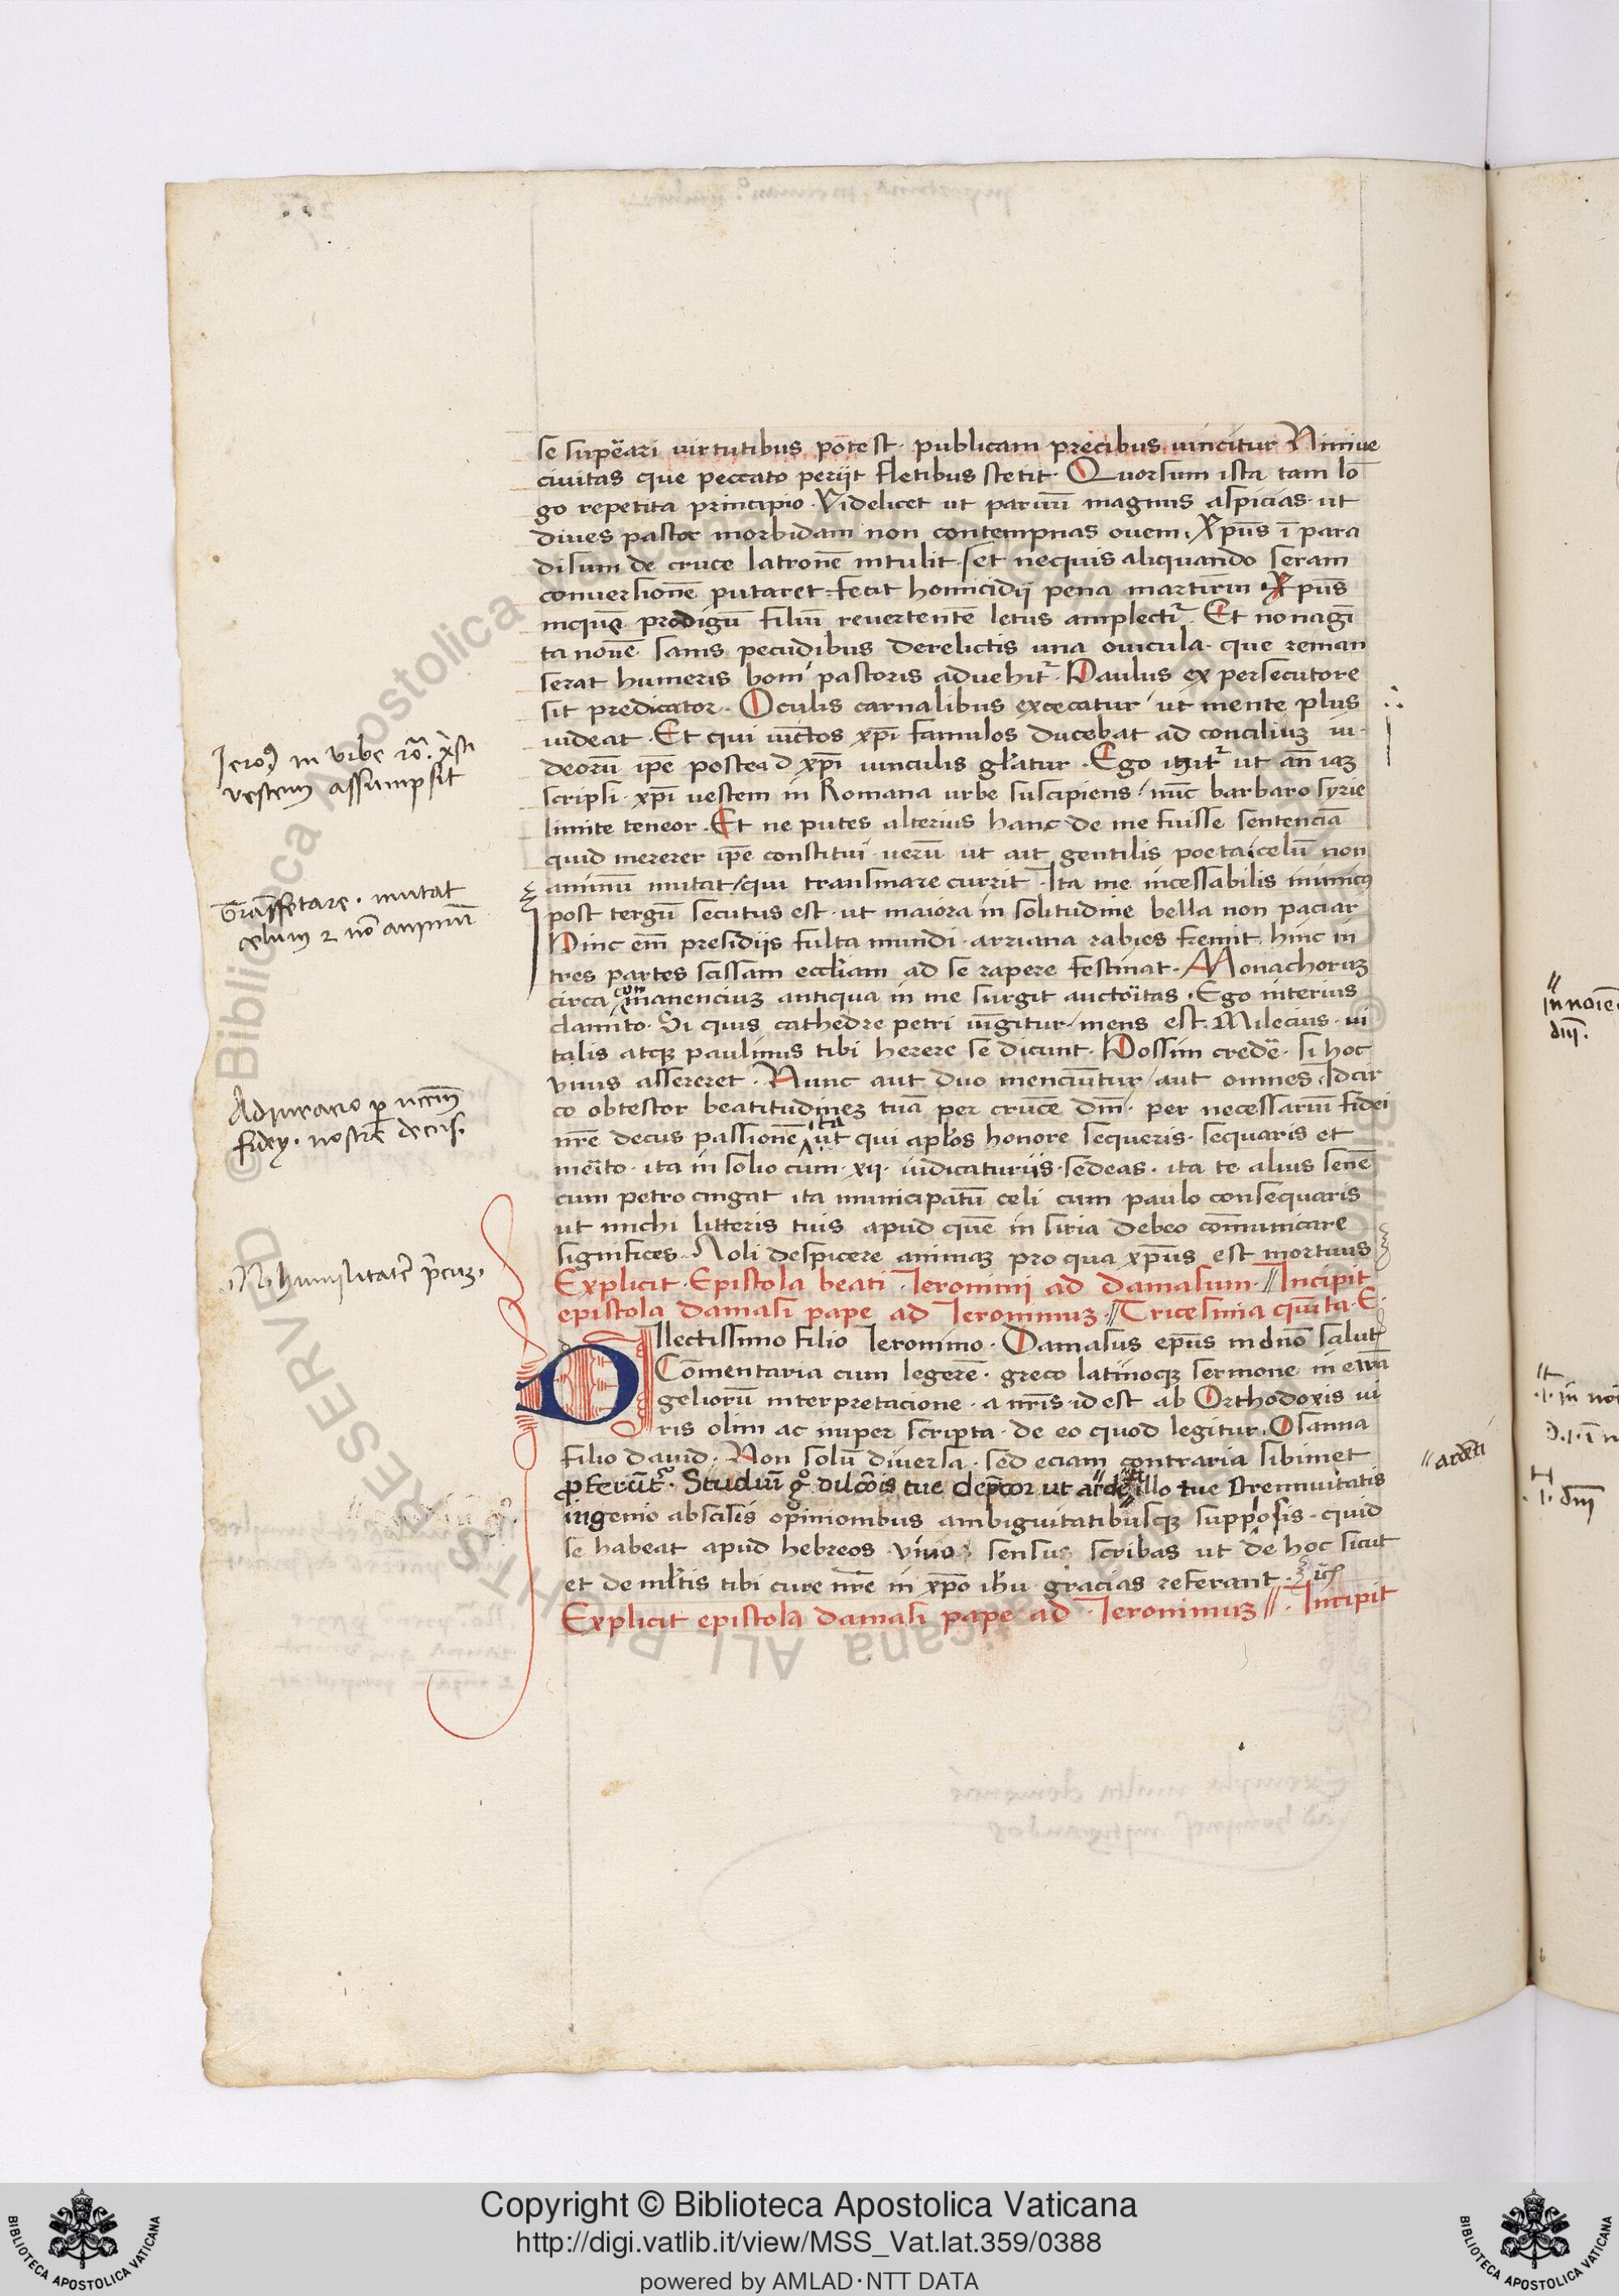 se sup̄eari virtutibus pōtest · publicam precibus vincitur Ninive
civitas que peccato periit fletibus stetit · Quorsum ista tam lō
go repetita principio · Videlicet ut parvū magnus aspicias · ut
dives pastor morbidam non contempnas ovem · Xp̄us ī para
disum de cruce latronē intulit · set nequis aliquando seram
conversionē putaret · fecit homicidij pena martirīu · Xp̄us
inquę prodigū filiū revertentē letus amplectr̄ · Et nonagī
ta novē sanis pecudibus derelictis una ovicula · que reman
serat humeris boni pastoris advehit̄ · Paulus ex persecutore
fit predicator · Oculis carnalibus excecatur / ut mente plus
videat · Et qui vīctos xp̄i famulos ducebat ad conciliuꝫ iu ·
deorū ip̄e postea d xp̄i vinculis gl̄atur · Ego igit̄ ut an̄ iaꝫ
scripsi · xp̄i vestem in Romana urbe suscipiens / nūc barbaro syrie
limite teneor · Et ne putes alterius hanc de me fuisse sentenciā
quid mererer ip̄e constitui · verū ut ait gentilis poeta · celū non
animū mutat / qui transmare currit · Ita me incessabilis inimicꝰ
post tergū secutus est · ut maiora in solitudine bella non paciar
Hinc em̄ presidiis fulta mundi · arriana rabies fremit · hinc in
tres partes scissam eccl̄iam ad se rapere festinat · Monachoruꝫ
circa manenciuꝫ antiqua in me surgit auctōitas · Ego interius
con
clamito · Si quis cathedre petri iūgitur / meus est · Milecius · vi
talis atqꝫ paulinus tibi herere se dicunt · Possim credē · si hoc
vnus assereret · Nunc aut duo menciūtur / aut omnes · Idcir
co obtestor beatitudineꝫ tuā per crucē dn̄i · per necessariū fidei
nr̄e decus passionē ut qui ap̄los honore sequeris · sequaris et
ita
meīto · ita in solio cum · xij · iudicaturiis · sedeas · ita te alius senē
cum petro cingat ita municipatū celi cum paulo consequaris
ut michi litteris tuis apud quē in siria debeo cōmunicare
significes · Noli despicere animaꝫ pro qua xp̄us est mortuus
Explicit · Epistola beati · Jeronimi ad damasum · // Incipit
epistola damasi pape ad Jeronimuꝫ · // Tricesima quīta · E ·
d
Dllectissimo filio Jeronimo · Damasus ep̄us in dn̄o salut̄
Cōmentaria cum legerē · greco latinoqꝫ sermone in ewā
geliorū interpretacione · a nr̄is · id est ab Orthodoxis vi
ris olim ac nuper scripta · de eo quod legitur · Osanna
filio david · Non solū diversa · sed eciam contraria sibimet
ꝓferūt̄ · Studiū gͦ dil̄cōis tue dep̄cor ut arde illo tue
ingenio abscisis opinionibus ambiguitatibusqꝫ supposis · quid
se habeat apud hebreos vivo sensu scribas ut de hoc sicut
et de ml̄tis tibi cure nr̄e in xp̄o ih̄u gracias referant ·
Explicit epistola damasi pape ad · Jeronimuꝫ // · Incipit
Jeroꝰ in vrbe ro · x̄sti
vestem assumpsit
mutat
celum ⁊ nō animū
Adiuracio ꝑ
fidey · nostre decus ·
humilitatē p̄cuꝫ ·
// ardēti
Copyright © Biblioteca Apostolica Vaticana
http://digi.vatlib.it/view/MSS_Vat.lat.359/0388
powered by AMLAD·NTT DATA
BIBLIOTECA APOSTOLICA VATICANA
BIBLIOTECA APOSTOLICA VATICANA